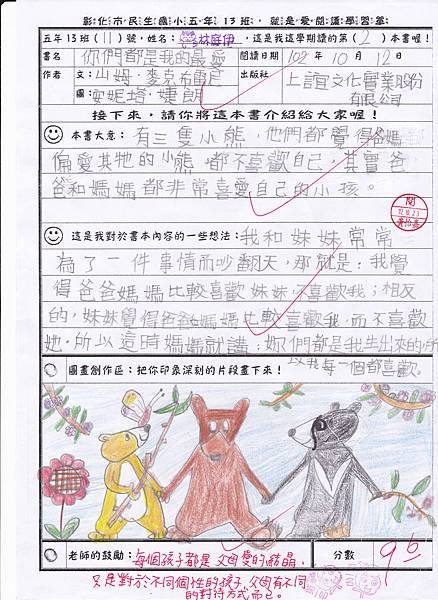 彰化市民生國小五年13班，就是愛閱讀學習單
五年13班(11)號，姓名：林庭伊，這是我這學期讀的第(2)本書喔！
書名 你們都是我的最愛 閱讀日期 102年10月12日
作者 文：山姆·麥克布雷尼 出版社 上誼文化實業股份
圖：安妮塔·婕朗 有限公司
接下來，請你將這本書介紹給大家喔！
本書大意：有三隻小熊，他們都覺得爸媽
偏愛其牠的小熊，都不喜歡自己，其實爸
爸和媽媽都非常喜愛自己的小孩。
閱
12.10.23
這是我對於書本內容的一些想法：我和妹妹常常
為了一件事情而吵翻天，那就是：我覺
得爸爸媽媽比較喜歡妹妹，不喜歡我；相反
的，妹妹覺得爸爸媽媽比較喜歡我，而不喜歡
她。所以這時媽媽就講：妳們都是我生出來的，所
以我每一個都喜歡。
圖畫創作區：把你印象深刻的片段畫下來！
老師的鼓勵：每個孩子都是父母愛的結晶， 分數 96
只是對於不同個性的孩子，父母有不同
的對待方式而已。